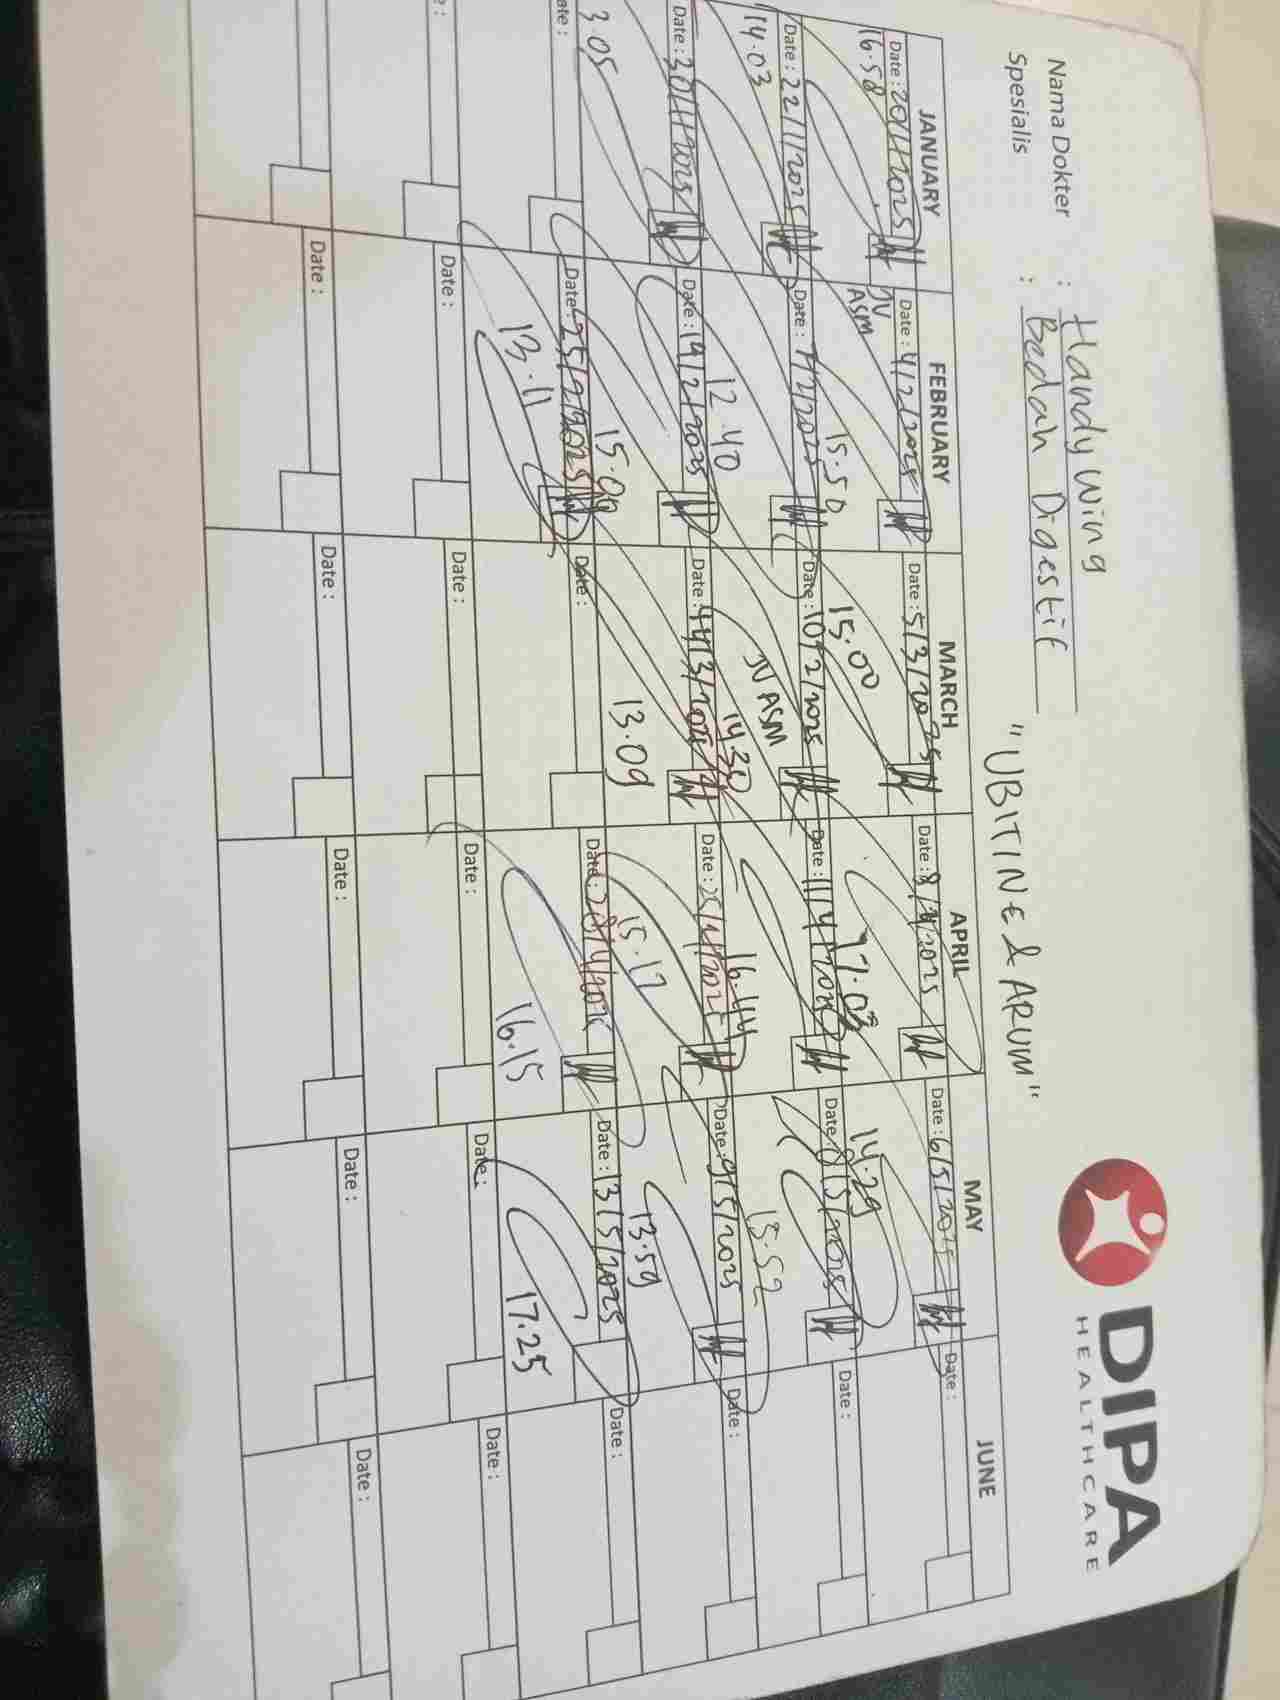 DIPA
HEALTHCARE
Nama Dokter : Handy Wing
Spesialis : Bedah Digestif
"UBITINE & ARUM"
JANUARY FEBRUARY MARCH APRIL MAY JUNE
Date : 20/1/2025 Date : 4/2/2025 Date : 5/3/2025 Date : 8/4/2025 Date : 6/5/2025 Date :
16.58 JV ASM 15.50 15.00 17.03 14.29
Date : 22/1/2025 Date : 7/2/2025 Date : 10/2/2025 Date : 11/4/2025 Date : 8/5/2025 Date :
14.03 12.40 JV ASM 14.30 16.44 13.52
Date : 30/1/2025 Date : 19/2/2025 Date : 14/3/2025 Date : 25/4/2025 Date : 9/5/2025 Date :
3.05 13.09 15.17 13.59
ate : Date : 25/2/2025 Date : Date : 28/4/2025 Date : 13/5/2025 Date :
13.11 16.15 17.25
Date : Date : Date : Date : Date :
Date : Date : Date : Date : Date :